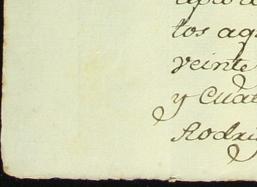 los aq
veinte
y Cuat
Rodri